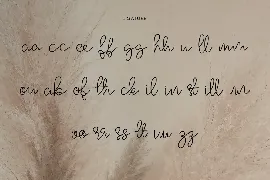 LIGATURE
aa cc ee ff gg hh ll
ou ab of th ck il in st ill
oa rr ss tt un zz